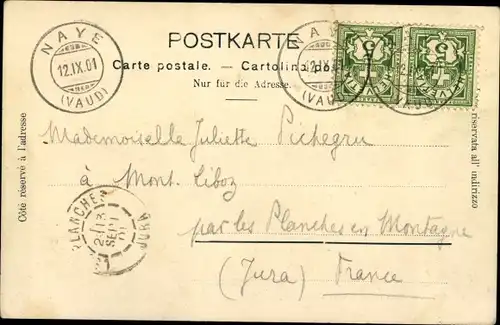 NAYE
12.IX.01
(VAUD)
POSTKARTE
Carte postale. — Cartolina postale
Nur für die Adresse.
NAYE
12.IX.01
(VAUD)
5
HELVETIA
5
HELVETIA
Côté réservé à l'adresse
riservata all' indirizzo
Mademoiselle Juliette Pichegru
à Mont Liboz
par les Planches en Montagne
(Jura) France
PLANCHES
SEPT
01
JURA